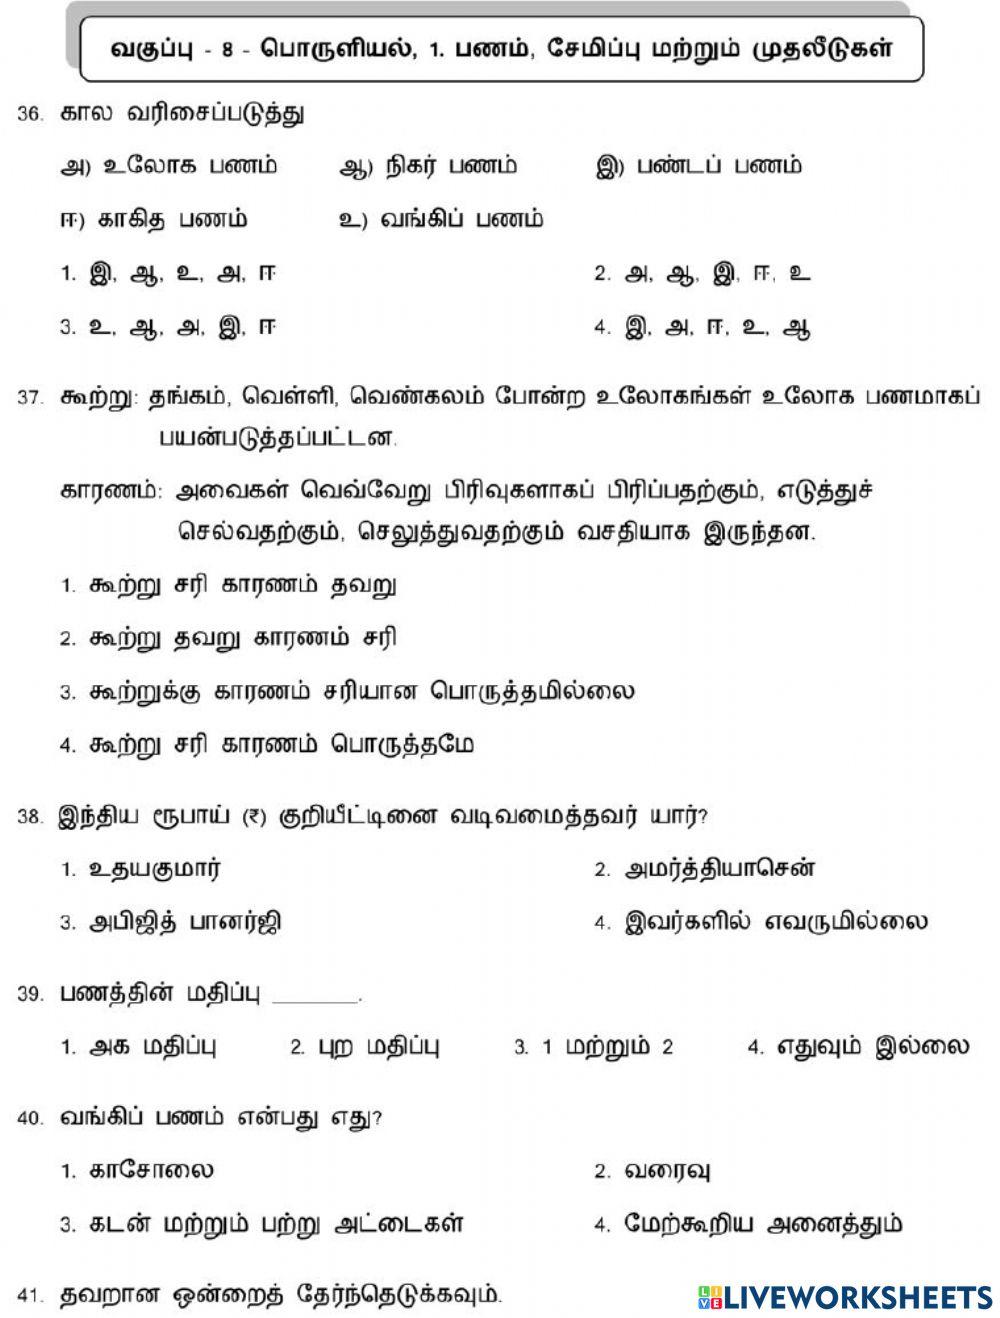 வகுப்பு - 8 - பொருளியல், 1. பணம், சேமிப்பு மற்றும் முதலீடுகள்
36. கால வரிசைப்படுத்து
அ) உலோக பணம் ஆ) நிகர் பணம் இ) பண்டப் பணம்
ஈ) காகித பணம் உ) வங்கிப் பணம்
1. இ, ஆ, உ, அ, ஈ 2. அ, ஆ, இ, ஈ, உ
3. உ, ஆ, அ, இ, ஈ 4. இ, அ, ஈ, உ, ஆ
37. கூற்று: தங்கம், வெள்ளி, வெண்கலம் போன்ற உலோகங்கள் உலோக பணமாகப்
பயன்படுத்தப்பட்டன.
காரணம்: அவைகள் வெவ்வேறு பிரிவுகளாகப் பிரிப்பதற்கும், எடுத்துச்
செல்வதற்கும், செலுத்துவதற்கும் வசதியாக இருந்தன.
1. கூற்று சரி காரணம் தவறு
2. கூற்று தவறு காரணம் சரி
3. கூற்றுக்கு காரணம் சரியான பொருத்தமில்லை
4. கூற்று சரி காரணம் பொருத்தமே
38. இந்திய ரூபாய் (₹) குறியீட்டினை வடிவமைத்தவர் யார்?
1. உதயகுமார் 2. அமர்த்தியாசென்
3. அபிஜித் பானர்ஜி 4. இவர்களில் எவருமில்லை
39. பணத்தின் மதிப்பு _______.
1. அக மதிப்பு 2. புற மதிப்பு 3. 1 மற்றும் 2 4. எதுவும் இல்லை
40. வங்கிப் பணம் என்பது எது?
1. காசோலை 2. வரைவு
3. கடன் மற்றும் பற்று அட்டைகள் 4. மேற்கூறிய அனைத்தும்
41. தவறான ஒன்றைத் தேர்ந்தெடுக்கவும்.
LIVE LIVEWORKSHEETS